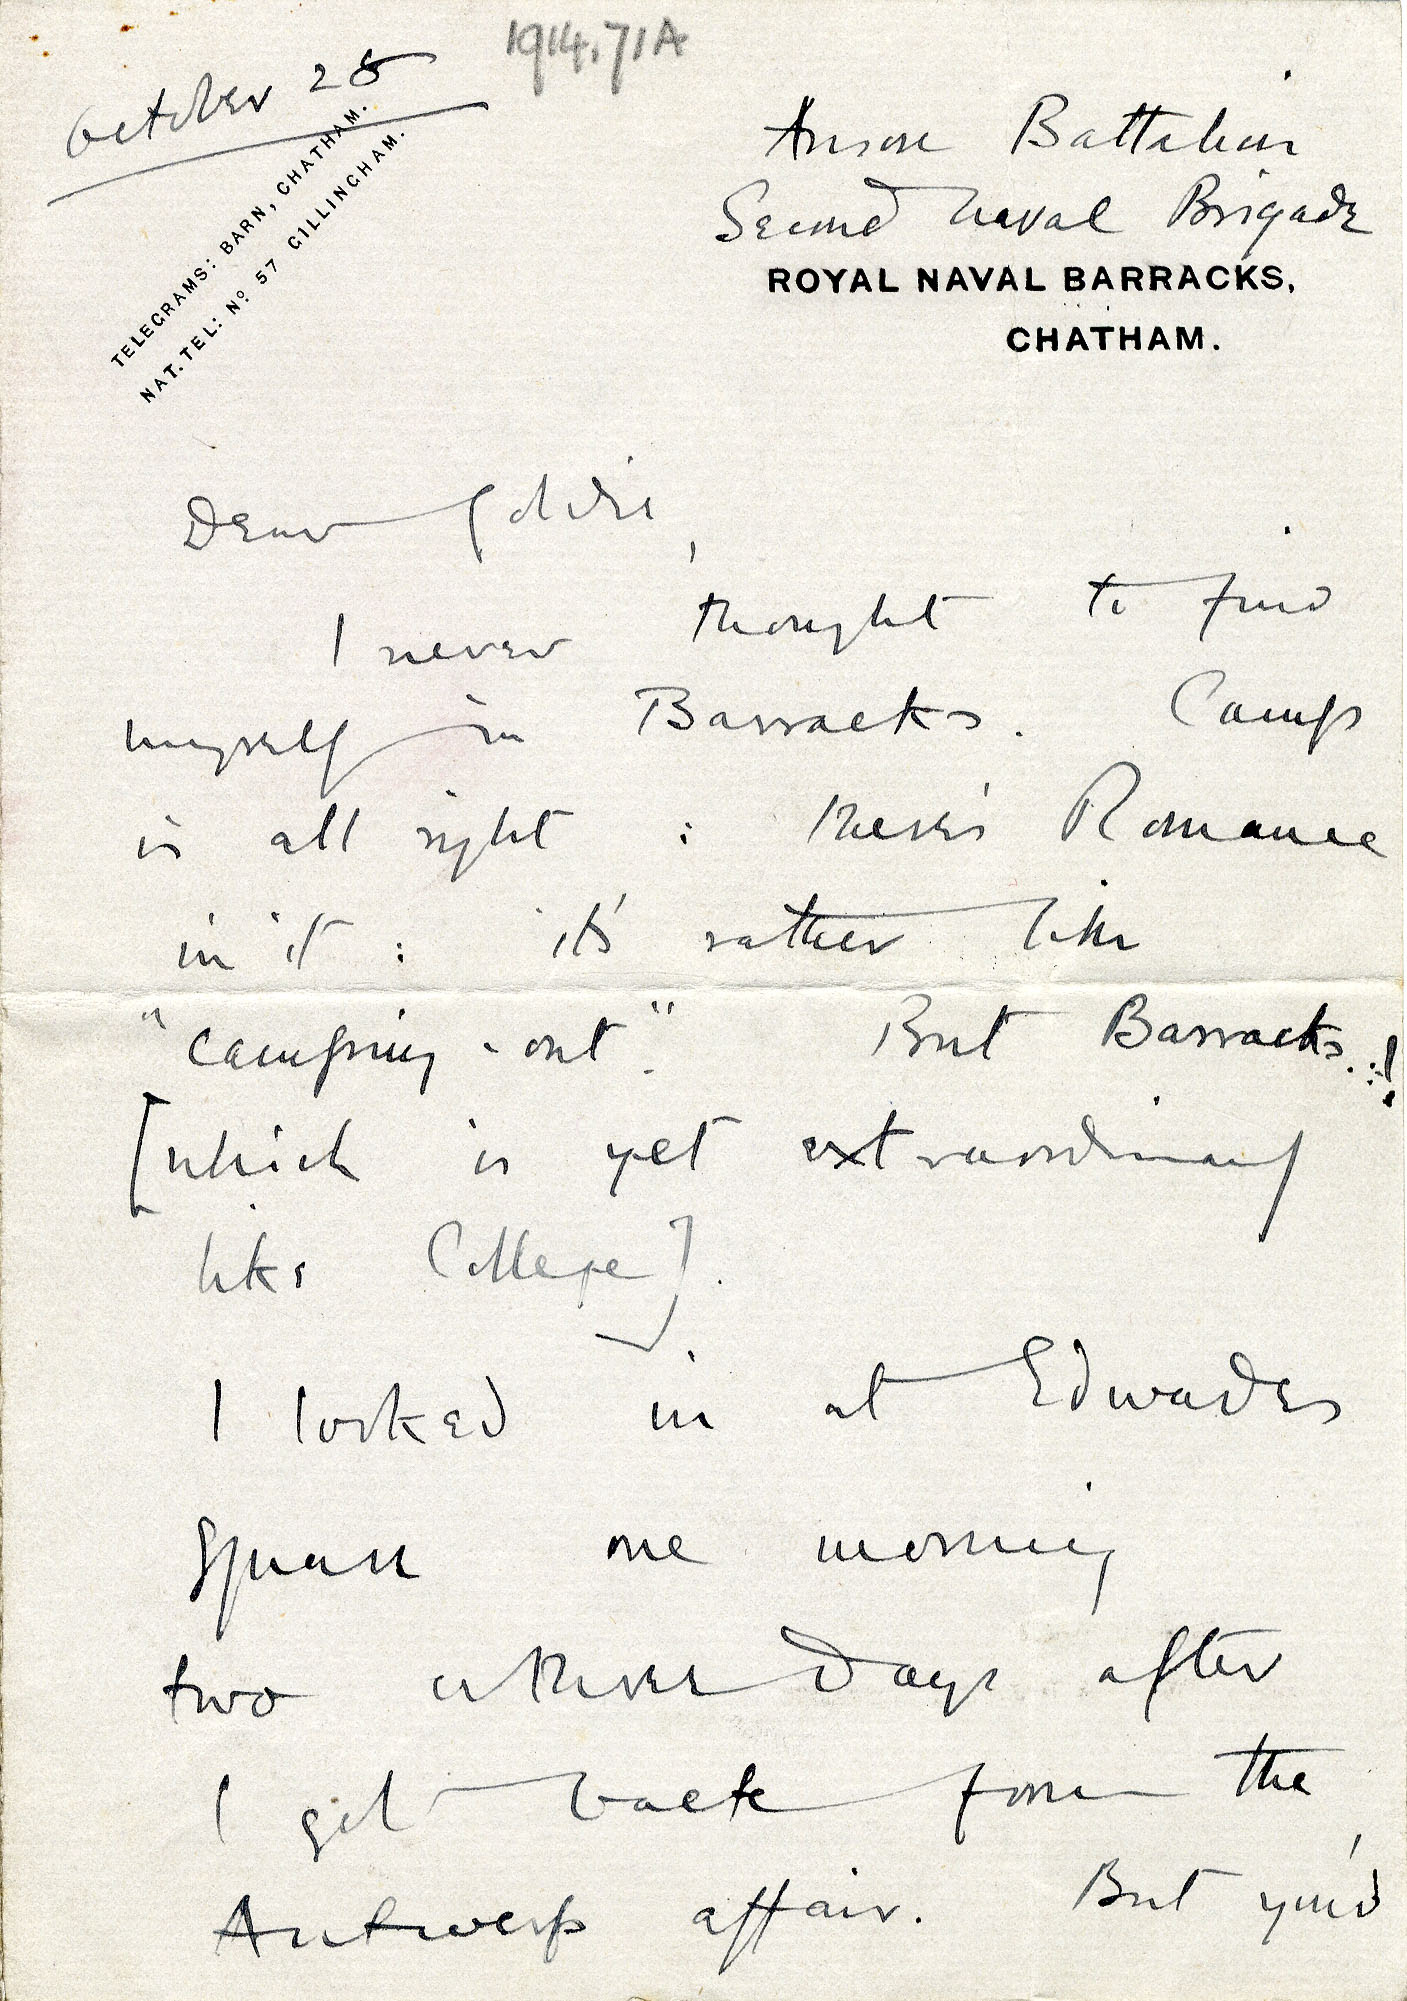 1914.71A
October 25
TELEGRAMS: BARN, CHATHAM.
NAT. TEL: Nº 57 GILLINGHAM.
Anson Battalion
Second Naval Brigade
ROYAL NAVAL BARRACKS,
CHATHAM.
Dear Goldie,
I never thought to find
myself in Barracks. Camp
is all right: there's Romance
in it: it's rather like
"camping-out". But Barracks..!
[which is yet extraordinarily
like College].
I looked in at Edwardes
Square one morning
two or three days after
I got back from the
Antwerp affair. But you'd